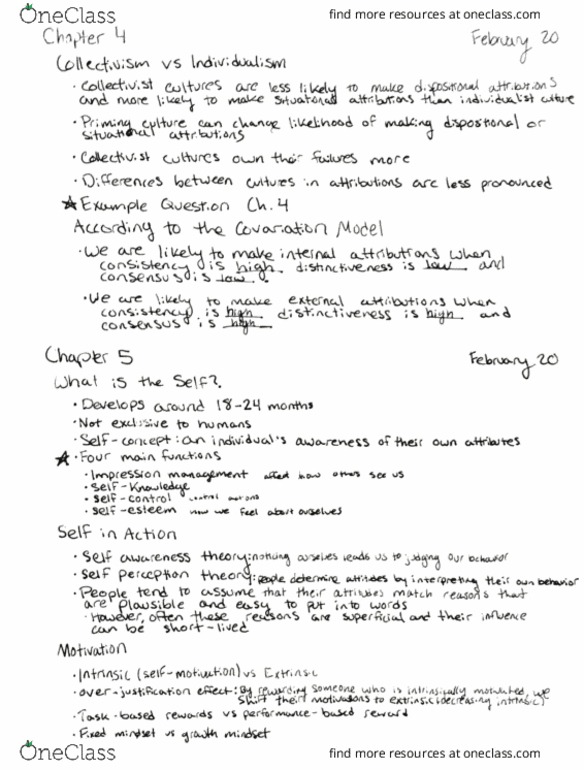 OneClass
find more resources at oneclass.com
Chapter 4
February 20
Collectivism vs Individualism
• Collectivist cultures are less likely to make dispositional attributions
and more likely to make situational attributions than individualist culture
• Priming culture can change likelihood of making dispositional or
situational attributions
• Collectivist cultures own their failures more
• Differences between cultures in attributions are less pronounced
★ Example Question Ch. 4
According to the Covariation Model
• We are likely to make internal attributions when
consistency is high distinctiveness is low and
consensus is low.
• We are likely to make external attributions when
consistency is high distinctiveness is high and
consensus is high
Chapter 5
February 20
What is the Self?
• Develops around 18-24 months
• Not exclusive to humans
• Self-concept: an individual's awareness of their own attributes
★ • Four main functions
• Impression management affect how others see us
• Self-Knowledge
• Self-control control actions
• Self-esteem how we feel about ourselves
Self in Action
• Self awareness theory: noticing ourselves leads us to judging our behavior
• Self perception theory: people determine attitudes by interpreting their own behavior
• People tend to assume that their attitudes match reasons that
are plausible and easy to put into words
• However, often these reasons are superficial and their influence
can be short-lived
Motivation
• Intrinsic (self-motivation) vs Extrinsic
• over-justification effect: By rewarding someone who is intrinsically motivated, we
shift their motivations to extrinsic (decreasing intrinsic)
• Task-based rewards vs performance-based reward
• Fixed mindset vs growth mindset
OneClass
find more resources at oneclass.com